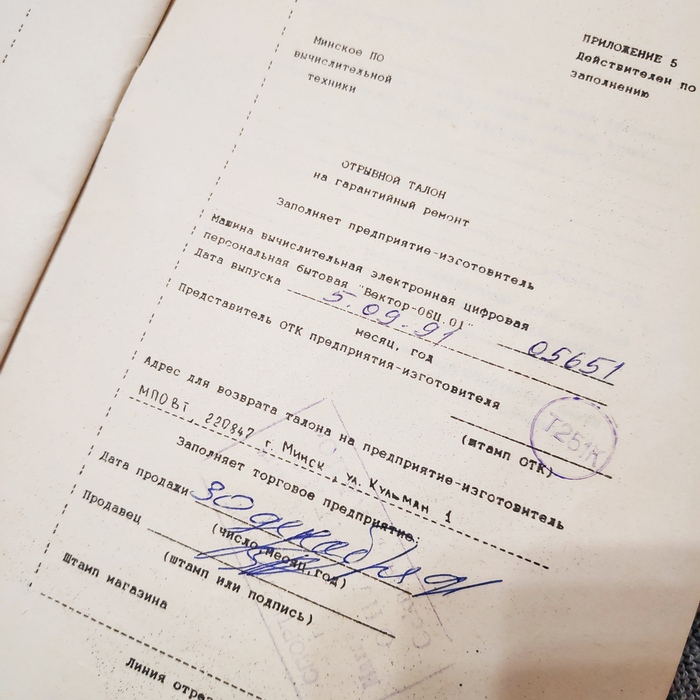 Минское ПО
вычислительной
техники
ПРИЛОЖЕНИЕ 5
Действителен по
заполнению
ОТРЫВНОЙ ТАЛОН
на гарантийный ремонт
Заполняет предприятие-изготовитель
Машина вычислительная электронная цифровая
персональная бытовая "Вектор-06Ц.01" 05651
Дата выпуска 5.09.91
месяц, год
Представитель ОТК предприятия-изготовителя
(штамп ОТК)
Т251К
Адрес для возврата талона на предприятие-изготовитель
МПОВТ, 220847 г. Минск, ул. Кульман 1
Заполняет торговое предприятие:
Дата продажи 30 декабря 91
(число, месяц, год)
Продавец
(штамп или подпись)
Штамп магазина
Линия отре